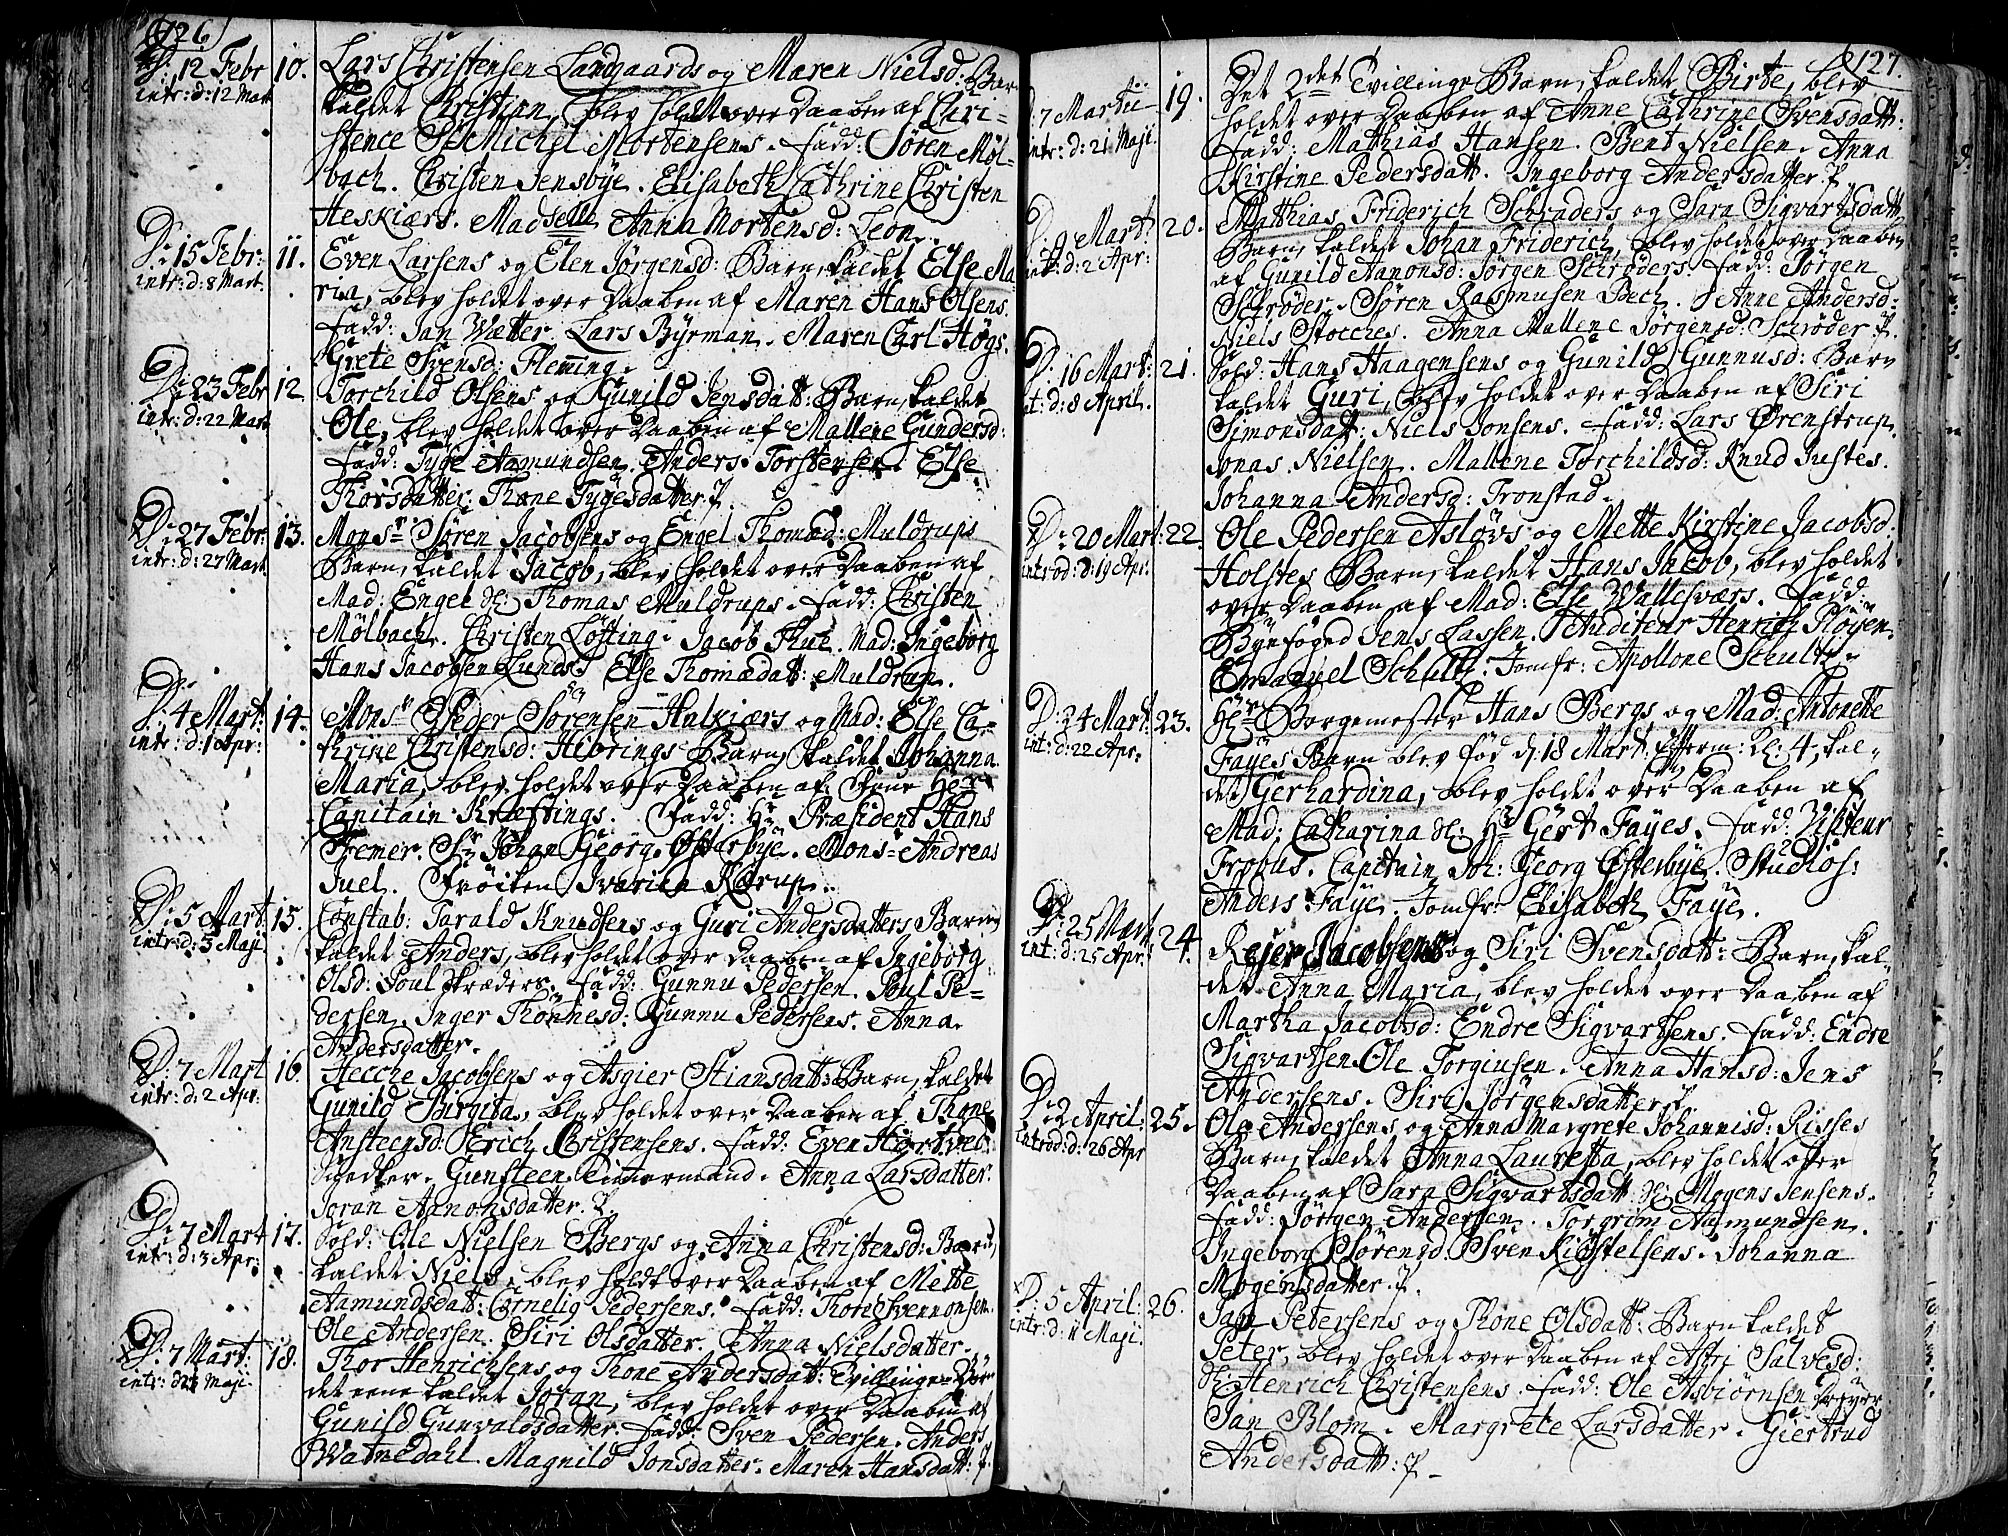 126
D: 12 Febr 10. Lars Christensen Landgaards og Maren Nielsd: Barn
intr: d: 12 Mart kaldet Christian, blev holdt over Daaben af Chri-
stence Sl Michel Mortensens. Fadd: Søren Møl-
bach. Christen Jensbÿe. Elisabeth Cathrine Christen
Heskiærs. Madselle Anna Mortensd: Leon.
D: 15 Febr: 11. Even Larsens og Elen Jørgensd: Barn, kaldet Else Ma
intr: d: 8 Mart. ria, blev holdet over Daaben af Maren Hans Olsens.
Fadd: Jan Wætter. Lars Bÿrman. Maren Carl Høgs.
Grete Svensd: Fleming.
D: 23 Febr 12 Torchild Olsens og Gunild Jensdatt: Barn, kaldet
intr: d: 22 Mart Ole, blev holdet over Daaben af Mallene Gundersd:
Fadd: Tyge Aamundsen. Anders Torstensen. Else
Thorsdatter. Thone Tygesdatter.
D: 27 Febr: 13. Monsr Søren Jacobsens og Engel Thomæd: Muldrups
intr: d: 27 Mart Barn, kaldet Jacob, blev holdet over Daaben af
Mad: Engel Sl: Thomas Muldrups. Fadd: Christen
Mølbach. Christen Løfting. Jacob Thue. Mad: Ingeborg
Hans Jacobsen Lunds. Else Thomædatt: Muldrup.
D: 4 Mart: 14. Monsr Peder Sørensen Halkiærs og Mad: Else Ca-
intr: d: 1 Apr: thrine Christensd: Hibrings Barn, kaldet Johanna
Maria, blev holdet over Daaben af Frue Hr
Capitain Kræftings. Fadd: Hr Præsident Hans
Fremer. Sr Johan Georg Østerbÿe. Mons: Andreas
Juel. Frøiken Ivarica Kørup.
D: 5 Mart 15. Constab: Tarald Knudsens og Guri Andersdatters Barn
intr: d: 3 Maji. kaldet Anders, blev holdet over Daaben af Ingeborg
Olsd: Poul Skræders. Fadd: Gunnu Pedersen. Poul Pe-
dersen. Inger Thønnesd: Gunnu Pedersens. Anna
Andersdatter.
D: 7 Mart 16. Hecche Jacobsens og Asgier Stiansdatt: Barn, kaldet
intr: d: 2 Apr: Gunild Birgita, blev holdet over Daaben af Thone
Anstensd: Erich Christensens. Fadd: Even
Gunsteen Timmermand. Anna Larsdatter.
Joran Aanonsdatter.
D: 7 Mart 17. Sold: Ole Nielsen Bergs og Anna Christensd: Barn,
intr: d: 3 Apr: kaldet Niels, blev holdt over Daaben af Mette
Aamundsdatt: Cornelig Pedersens. Fadd: Thore Svennonsen.
Ole Andersen. Siri Olsdatter. Anna Nielsdatter.
D: 7 Mart: 18. Thor Henrichsens og Thone Andersdatt: Tvillinge-Børn
intr: d: Maji. det eene kaldet Joran, blev holdet over Daaben af
Gunild Gunvaldsdatter. Fadd: Sven Pedersen. Anders
Watnedahl. Magnild Jonsdatter. Maren Hansdatt:
127.
D: 7 Martii 19. Det 2det Tvillinge Barn, kaldet Birte, blev
intr: d: 21 Maji. holdet over Daaben af Anne Cathrine Svensdatt:
Fadd: Mathias Hansen. Bent Nielsen. Anna
Kirstine Pedersdatt. Ingeborg Andersdatter.
D: 9 Mart: 20. Mathias Friderich Schraders og Sara Sigvartsdatt
int: d: 2 Apr: Barn, kaldet Johan Friderich, blev holdet over Daaben
af Gunild Aanonsd: Jørgen Schrøders. Fadd: Jørgen
Schrøder. Søren Rasmusen Bech. Anne Andersd:
Niels Stocches. Anna Mallene Jørgensd: Schrøder.
D: 16 Mart: 21. Sold: Hans Haagensens og Gunild Gunnusd: Barn
int: d: 8 April. kaldet Guri, blev holdet over Daaben af Siri
Simonsdatt: Niels Jonsens. Fadd: Lars Ørenstrup.
Jonas Nielsen. Mallene Torchildsd: Knud Justes.
Johanna Andersd: Tronstad.
D: 20 Mart: 22. Ole Pedersen Asløvs og Mette Kirstine Jacobsd:
introd: d: 19 Apr: Holstes Barn, kaldet Hans Jacob, blev holdet
over Daaben af Mad: Else Wallesværs. Fadd:
Bÿefoged Jens Lassen. Auditeur Henrich Pløyen.
Emanuel Schultz. Jomfr: Apollone Schultz.
D: 24 Mart: 23. Hr Borgemester Hans Bergs og Mad: Antonette
int: d: 22 Apr: Faÿes Barn blev fød d: 18 Mart. Efterm: Kl: 4, kal-
det Gerhardina, blev holdet over Daaben af
Mad: Catharina Sl: Hr Gert Faÿes. Fadd: Visiteur
Probus. Capitain Joh: Georg Østerbÿe. Studiøs:
Anders Faÿe. Jomfr: Elisabeth Faÿe.
D: 25 Mart 24. Rejer Jacobsens og Siri Svensdatt: Barn, kal-
int: d: 25 Apr: det Anna Maria, blev holdet over Daaben af
Martha Jacobsd: Endre Sigvartsens. Fadd: Endre
Sigvartsen. Ole Torgiusen. Anna Hansd: Jens
Andersens. Siri Jørgensdatter.
D: 2 April: 25. Ole Andersens og Anna Margrete Johannisd: Riisses
introd: d: 26 Apr Barn, kaldet Anna Lauretta, blev holdet ofver
Daaben af Sara Sigvartsdatt: Sl: Mogens Jensens.
Fadd: Jørgen Andersen. Torgrim Aamundsen.
Ingeborg Sørensd: Sven Kiøstelsens. Johanna
Mogensdatter.
D: 5 April: 26. Jan Petersens og Thone Olsdatt: Barn kaldet
intr: d: 11 Maji. Peter, blev holdet over Daaben af Astri Salvesd:
Sl: Henrich Christensens. Fadd: Ole Asbiørnsen
Jan Blom. Margrete Larsdatter. Giertrud
Andersdatt: